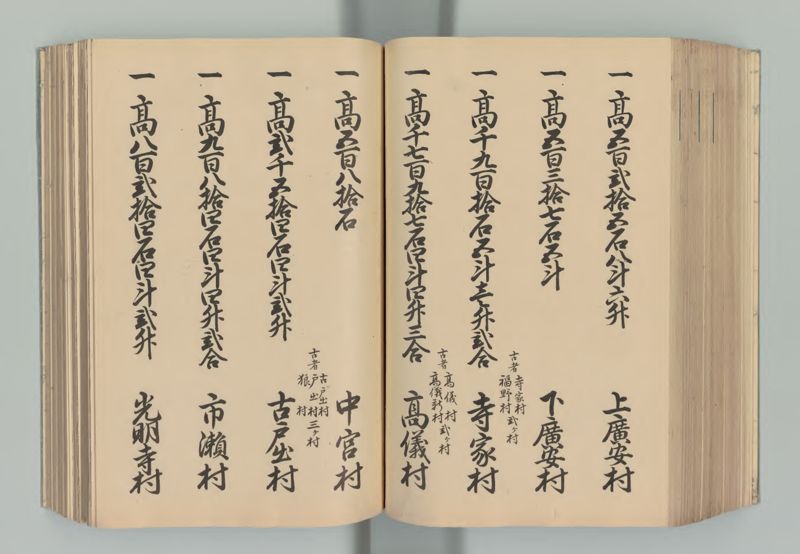 一 高五百弐拾五石八斗六升 上廣安村
一 高五百三拾七石五斗 下廣安村
一 高千九百拾石五斗壱升弐合 寺家村
古者 寺家村 福野村 弐ケ村
一 高千七百九拾七石四斗四升三合 高儀村
古者 高儀村 高儀新村 弐ケ村
一 高五百八拾石 中宮村
一 高弐千五拾四石四斗弐升 古戸出村
古者 古戸出村 戸出村 狼村 三ケ村
一 高九百八拾四石四斗四升弐合 市瀬村
一 高八百弐拾四石四斗弐升 光明寺村